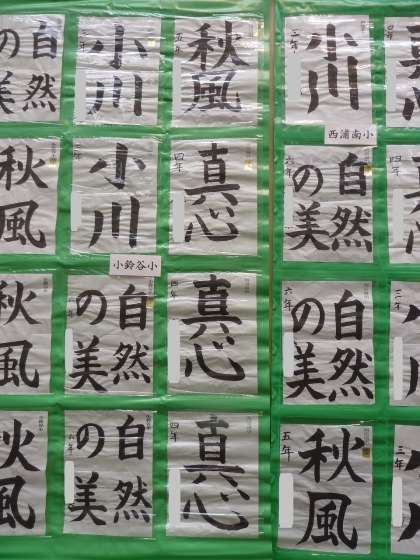 自然
の美
小川
三年
秋風
五年
秋風
小川
三年
真心
四年
小鈴谷小
秋風
自然
の美
真心
四年
秋風
自然
の美
六年
真心
四年
小川
三年
西浦南小
自然
の美
六年
四年
自然
の美
六年
三年
秋風
五年
三年